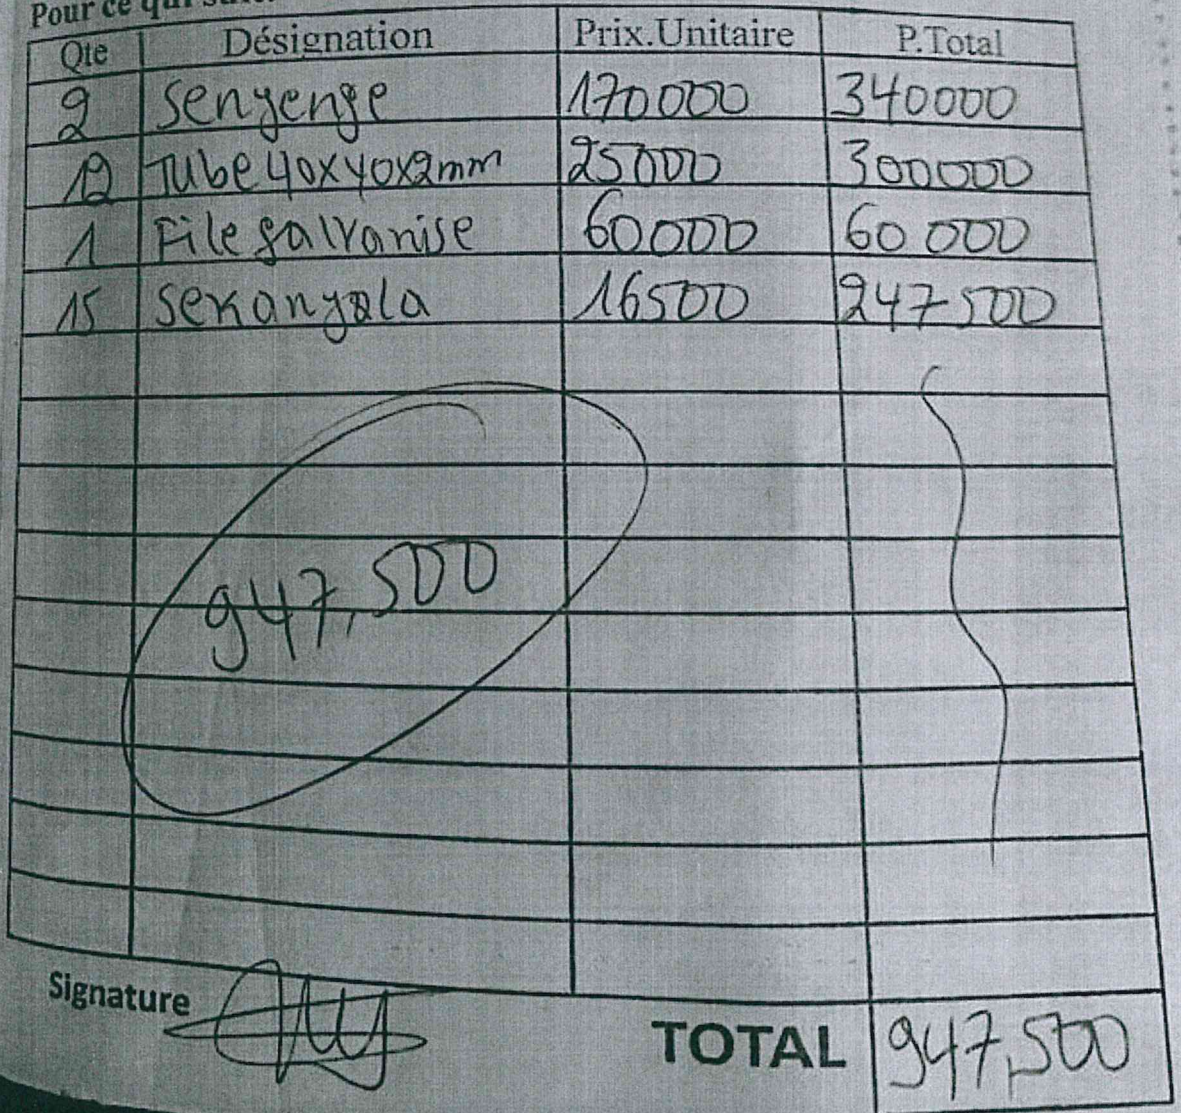 Pour ce qui suit
Qte Désignation Prix.Unitaire P.Total
2 Senyenge 170000 340000
12 Tube 40x40x2mm 25000 300000
1 File galvanise 60000 60 000
15 Sekanyola 16500 247 500
947,500
Signature
TOTAL 947,500